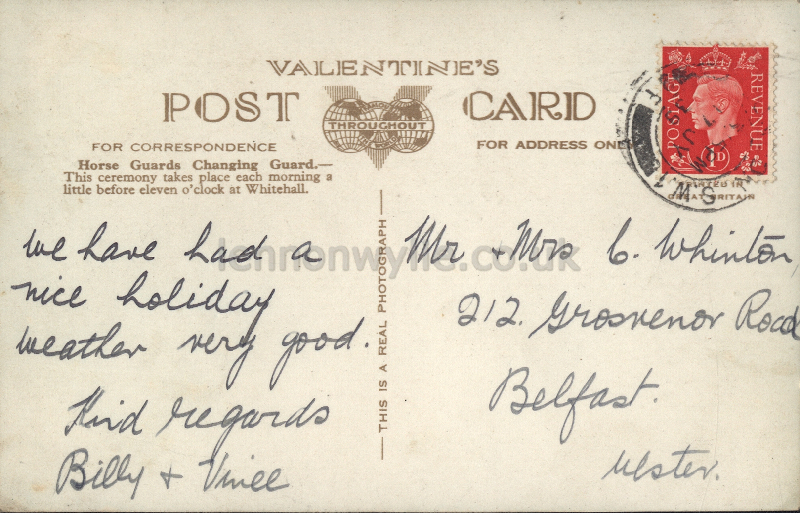 VALENTINE'S
POST CARD
THROUGHOUT
FOR CORRESPONDENCE
FOR ADDRESS ONLY
Horse Guards Changing Guard.—
This ceremony takes place each morning a
little before eleven o'clock at Whitehall.
POSTAGE
REVENUE
1D
S.W.1
PRINTED IN
GREAT BRITAIN
we have had a
nice holiday
weather very good.
Kind regards
Billy +
THIS IS A REAL PHOTOGRAPH
Mr + Mrs C. Whinton
212. Grosvenor Road
Belfast.
Ulster.
lennonwylie.co.uk